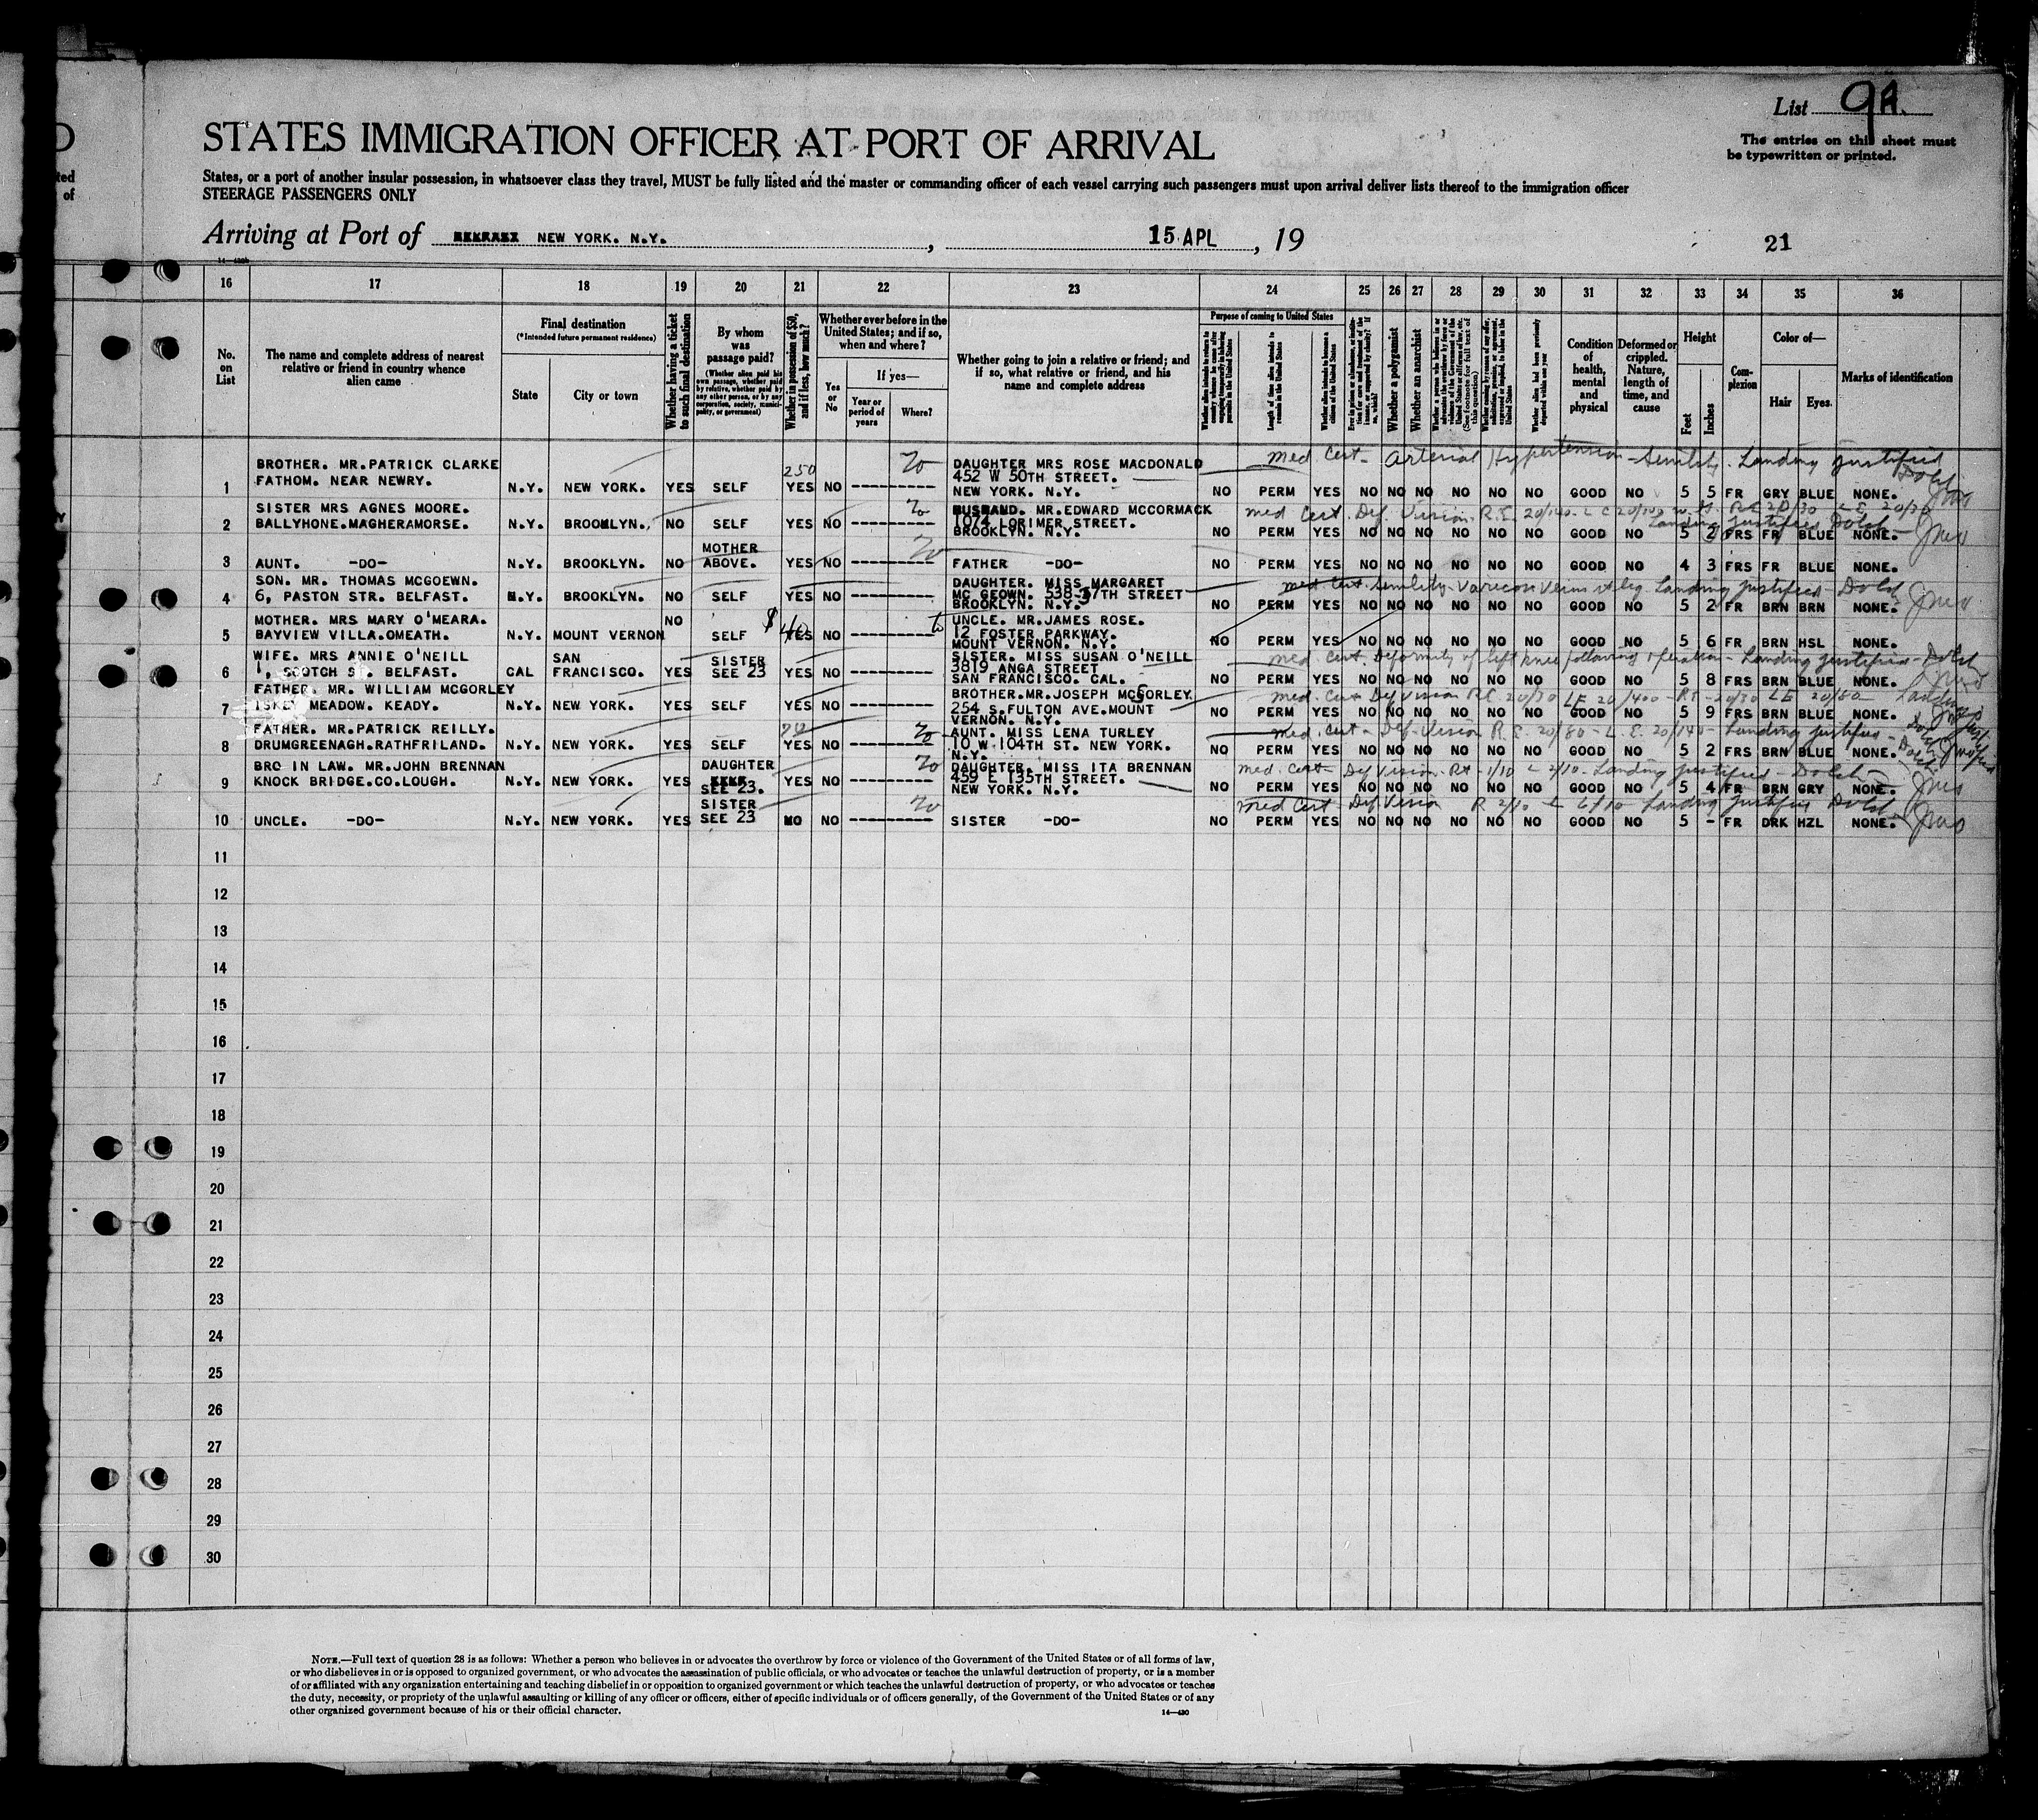 List 9A.
The entries on this sheet must
be typewritten or printed.
STATES IMMIGRATION OFFICER AT PORT OF ARRIVAL
States, or a port of another insular possession, in whatsoever class they travel, MUST be fully listed and the master or commanding officer of each vessel carrying such passengers must upon arrival deliver lists thereof to the immigration officer
STEERAGE PASSENGERS ONLY
Arriving at Port of NEW YORK. N.Y. , 15 APL , 19 21
16 17 18 19 20 21 22 23 24 25 26 27 28 29 30 31 32 33 34 35 36
No. on List
The name and complete address of nearest relative or friend in country whence alien came
Final destination
(*Intended future permanent residence)
State
City or town
Whether having a ticket to such final destination
By whom was passage paid?
(Whether alien paid his own passage, whether paid by relative, whether paid by any other person, or by any corporation, society, municipality, or government)
Whether in possession of $50, and if less, how much?
Whether ever before in the United States; and if so, when and where?
Yes or No
If yes—
Year or period of years
Where?
Whether going to join a relative or friend; and if so, what relative or friend, and his name and complete address
Purpose of coming to United States
Length of time alien intends to remain in the United States
Whether alien intends to become a citizen of the United States
Whether a polygamist
Whether an anarchist
Whether alien had been previously deported within one year
Condition of health, mental and physical
Deformed or crippled. Nature, length of time, and cause
Height
Feet
Inches
Complexion
Color of—
Hair
Eyes.
Marks of identification
med. Cert- Arterial Hypertension - Senility. Landing justified
BROTHER. MR.PATRICK CLARKE 250 DAUGHTER MRS ROSE MACDONALD
FATHOM. NEAR NEWRY. 452 W 50TH STREET.
1 N.Y. NEW YORK. YES SELF YES NO ---------- NEW YORK. N.Y. NO PERM YES NO NO NO NO NO NO GOOD NO 5 5 FR GRY BLUE NONE.
SISTER MRS AGNES MOORE. HUSBAND. MR.EDWARD MCCORMACK med Cert. Def. Vision. R.E. 20/140
2 BALLYHONE.MAGHERAMORSE. N.Y. BROOKLYN. NO SELF YES NO ---------- 1074 LORIMER STREET. Landing justified
BROOKLYN. N.Y. NO PERM YES NO NO NO NO NO NO GOOD NO 5 2 FRS FR BLUE NONE.
MOTHER
3 AUNT. -DO- N.Y. BROOKLYN. NO ABOVE. YES NO ---------- FATHER -DO- NO PERM YES NO NO NO NO NO NO GOOD NO 4 3 FRS FR BLUE NONE.
SON. MR. THOMAS MCGOEWN. DAUGHTER. MISS MARGARET med Cert. Senility. Landing justified
4 6, PASTON STR. BELFAST. N.Y. BROOKLYN. NO SELF YES NO ---------- MC GEOWN. 538-57TH STREET
BROOKLYN. N.Y. NO PERM YES NO NO NO NO NO NO GOOD NO 5 2 FR BRN BRN NONE.
MOTHER. MRS MARY O'MEARA. NO UNCLE. MR.JAMES ROSE.
5 BAYVIEW VILLA.OMEATH. N.Y. MOUNT VERNON SELF $40 YES NO ---------- 12 FOSTER PARKWAY.
MOUNT VERNON. N.Y. NO PERM YES NO NO NO NO NO NO GOOD NO 5 6 FR BRN HSL NONE.
WIFE. MRS ANNIE O'NEILL SAN SISTER SISTER. MISS SUSAN O'NEILL med. Cert. Deformity of left knee following operation - Landing justified
6 1, SCOTCH ST. BELFAST. CAL FRANCISCO. YES SEE 23 YES NO ---------- 3819 ANGA STREET
SAN FRANCISCO. CAL. NO PERM YES NO NO NO NO NO NO GOOD NO 5 8 FRS BRN BLUE NONE.
FATHER. MR. WILLIAM MCGORLEY BROTHER.MR.JOSEPH MCGORLEY med. Cert Def Vision
7 ISKEY MEADOW. KEADY. N.Y. NEW YORK. YES SELF YES NO ---------- 254 S.FULTON AVE.MOUNT
VERNON. N.Y. NO PERM YES NO NO NO NO NO NO GOOD NO 5 9 FRS BRN BLUE NONE.
FATHER. MR.PATRICK REILLY. AUNT. MISS LENA TURLEY med. Cert - Def. Vision R.E. 20/80 - L.E. 20/140 - Landing justified
8 DRUMGREENAGH.RATHFRILAND. N.Y. NEW YORK. YES SELF YES NO ---------- 10 W.104TH ST. NEW YORK.
N.Y. NO PERM YES NO NO NO NO NO NO GOOD NO 5 2 FRS BRN BLUE NONE.
BRO IN LAW. MR.JOHN BRENNAN DAUGHTER DAUGHTER. MISS ITA BRENNAN med. Cert Def Vision - Landing justified
9 KNOCK BRIDGE.CO.LOUGH. N.Y. NEW YORK. YES SEE 23. YES NO ---------- 459 E 135TH STREET.
NEW YORK. N.Y. NO PERM YES NO NO NO NO NO NO GOOD NO 5 4 FR BRN GRY NONE.
SISTER med Cert Def Vision Landing justified
10 UNCLE. -DO- N.Y. NEW YORK. YES SEE 23 NO NO ---------- SISTER -DO- NO PERM YES NO NO NO NO NO NO GOOD NO 5 - FR DRK HZL NONE.
11
12
13
14
15
16
17
18
19
20
21
22
23
24
25
26
27
28
29
30
NOTE.—Full text of question 28 is as follows: Whether a person who believes in or advocates the overthrow by force or violence of the Government of the United States or of all forms of law,
or who disbelieves in or is opposed to organized government, or who advocates the assassination of public officials, or who advocates or teaches the unlawful destruction of property, or is a member
of or affiliated with any organization entertaining and teaching disbelief in or opposition to organized government or which teaches the unlawful destruction of property, or who advocates or teaches
the duty, necessity, or propriety of the unlawful assaulting or killing of any officer or officers, either of specific individuals or of officers generally, of the Government of the United States or of any
other organized government because of his or their official character.
14—430